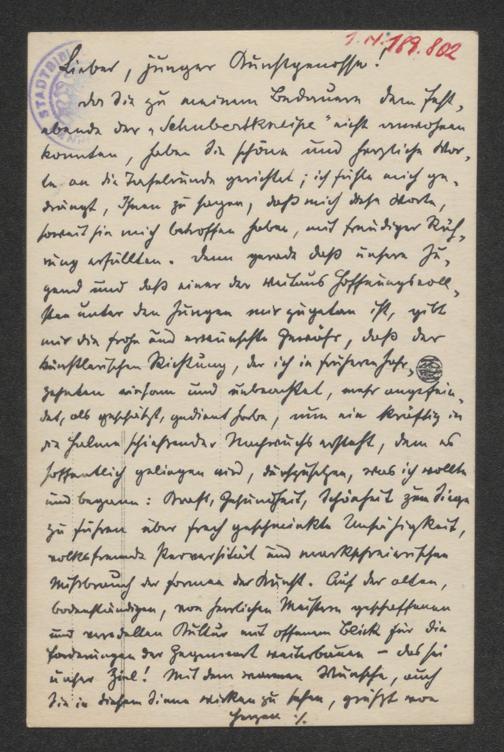 I.N. 189.802
STADTBIBL
Lieber, junger Kunstgenosse!
Da Sie zu meinem Bedauern dem Fest-
abende der „Schubertkneipe" nicht anwohnen
konnten, haben Sie schöne und herzliche Wor-
te an die Tafelrunde gerichtet; ich fühle mich ge-
drängt, Ihnen zu sagen, daß mich diese Worte,
soweit sie mich betroffen haben, mit freudiger Rüh-
rung erfüllten. Denn gerade daß unsere Ju-
gend und daß einer der weitaus hoffnungsvoll-
sten unter den Jungen mir zugetan ist, gibt
mir die frohe und erwünschte Gewähr, daß der
künstlerischen Richtung, der ich in früheren Jahr-
zehnten einsam und unbeachtet, mehr angefein-
det, als geschätzt, gedient habe, nun ein kräftig in
die Halme schießender Nachwuchs ersteht, dem es
hoffentlich gelingen wird, durchzusetzen, was ich wollte
und begann: Kraft, Gesundheit, Schönheit zum Siege
zu führen über frech geschminkte Unfähigkeit,
volksfremde Perversität und marktschreierischen
Mißbrauch der Formen der Kunst. Auf der alten,
bodenständigen, von herrlichen Meistern geschaffenen
und veredelten Kultur mit offenem Blick für die
Forderungen der Gegenwart weiterbauen – das sei
unser Ziel! Mit dem warmen Wunsche, auch
Sie in diesem Sinne wirken zu sehen, grüßt von
Herzen ./.